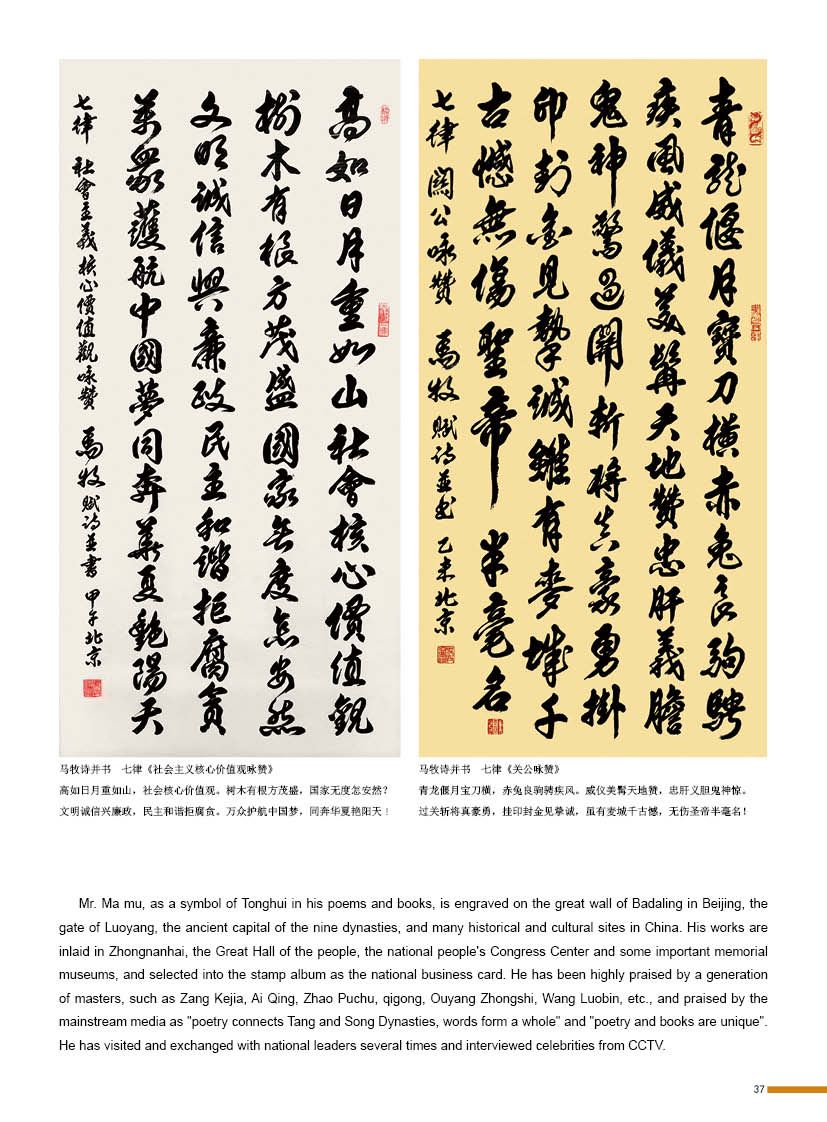 高如日月重如山社會核心價值觀
樹木有根方茂盛國家无度怎安然
文明誠信興廉政民主和諧拒腐貪
萬眾護航中國夢同奔華夏艷陽天
七律 社會主義核心價值觀咏贊 馬牧賦诗並書 甲午北京
青龍偃月寶刀橫赤兔良駒騁
疾風威儀美髯天地贊忠肝義膽
鬼神驚過關斬將真豪勇掛
印封金見摯誠雖有麥城千
古憾無傷聖帝半毫名
七律 關公咏贊 馬牧賦诗並书 乙未北京
马牧诗并书 七律《社会主义核心价值观咏赞》
高如日月重如山，社会核心价值观。树木有根方茂盛，国家无度怎安然？
文明诚信兴廉政，民主和谐拒腐贪。万众护航中国梦，同奔华夏艳阳天！
马牧诗并书 七律《关公咏赞》
青龙偃月宝刀横，赤兔良驹骋疾风。威仪美髯天地赞，忠肝义胆鬼神惊。
过关斩将真豪勇，挂印封金见挚诚，虽有麦城千古憾，无伤圣帝半毫名！
Mr. Ma mu, as a symbol of Tonghui in his poems and books, is engraved on the great wall of Badaling in Beijing, the
gate of Luoyang, the ancient capital of the nine dynasties, and many historical and cultural sites in China. His works are
inlaid in Zhongnanhai, the Great Hall of the people, the national people's Congress Center and some important memorial
museums, and selected into the stamp album as the national business card. He has been highly praised by a generation
of masters, such as Zang Kejia, Ai Qing, Zhao Puchu, qigong, Ouyang Zhongshi, Wang Luobin, etc., and praised by the
mainstream media as "poetry connects Tang and Song Dynasties, words form a whole" and "poetry and books are unique".
He has visited and exchanged with national leaders several times and interviewed celebrities from CCTV.
37